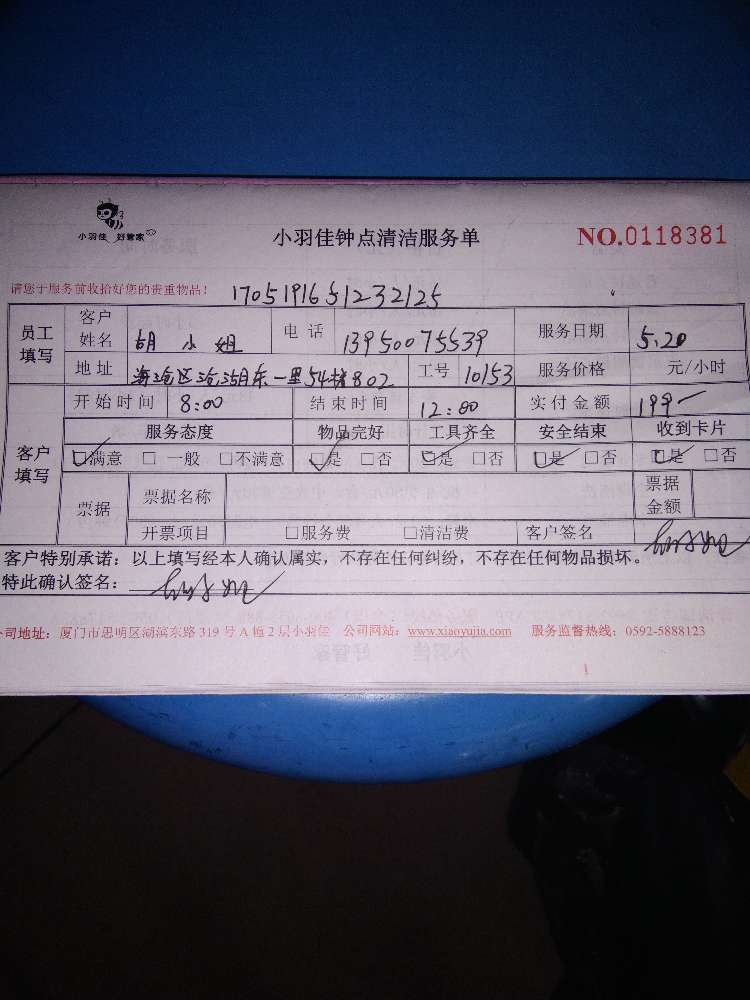 小羽佳 好管家
小羽佳钟点清洁服务单 NO.0118381
请您于服务前收拾好您的贵重物品! 1705191651232125
员工填写 客户姓名 胡小姐 电话 13950075539 服务日期 5.20
地址 海沧区沧湖东一里54栋802 工号 10153 服务价格 元/小时
客户填写 开始时间 8:00 结束时间 12:00 实付金额 199
服务态度 物品完好 工具齐全 安全结束 收到卡片
☑满意 □一般 □不满意 ☑是 □否 ☑是 □否 ☑是 □否 ☑是 □否
票据 票据名称 票据金额
开票项目 □服务费 □清洁费 客户签名
客户特别承诺：以上填写经本人确认属实，不存在任何纠纷，不存在任何物品损坏。
特此确认签名：
公司地址：厦门市思明区湖滨东路319号A幢2层小羽佳 公司网站：www.xiaoyujia.com 服务监督热线：0592-5888123